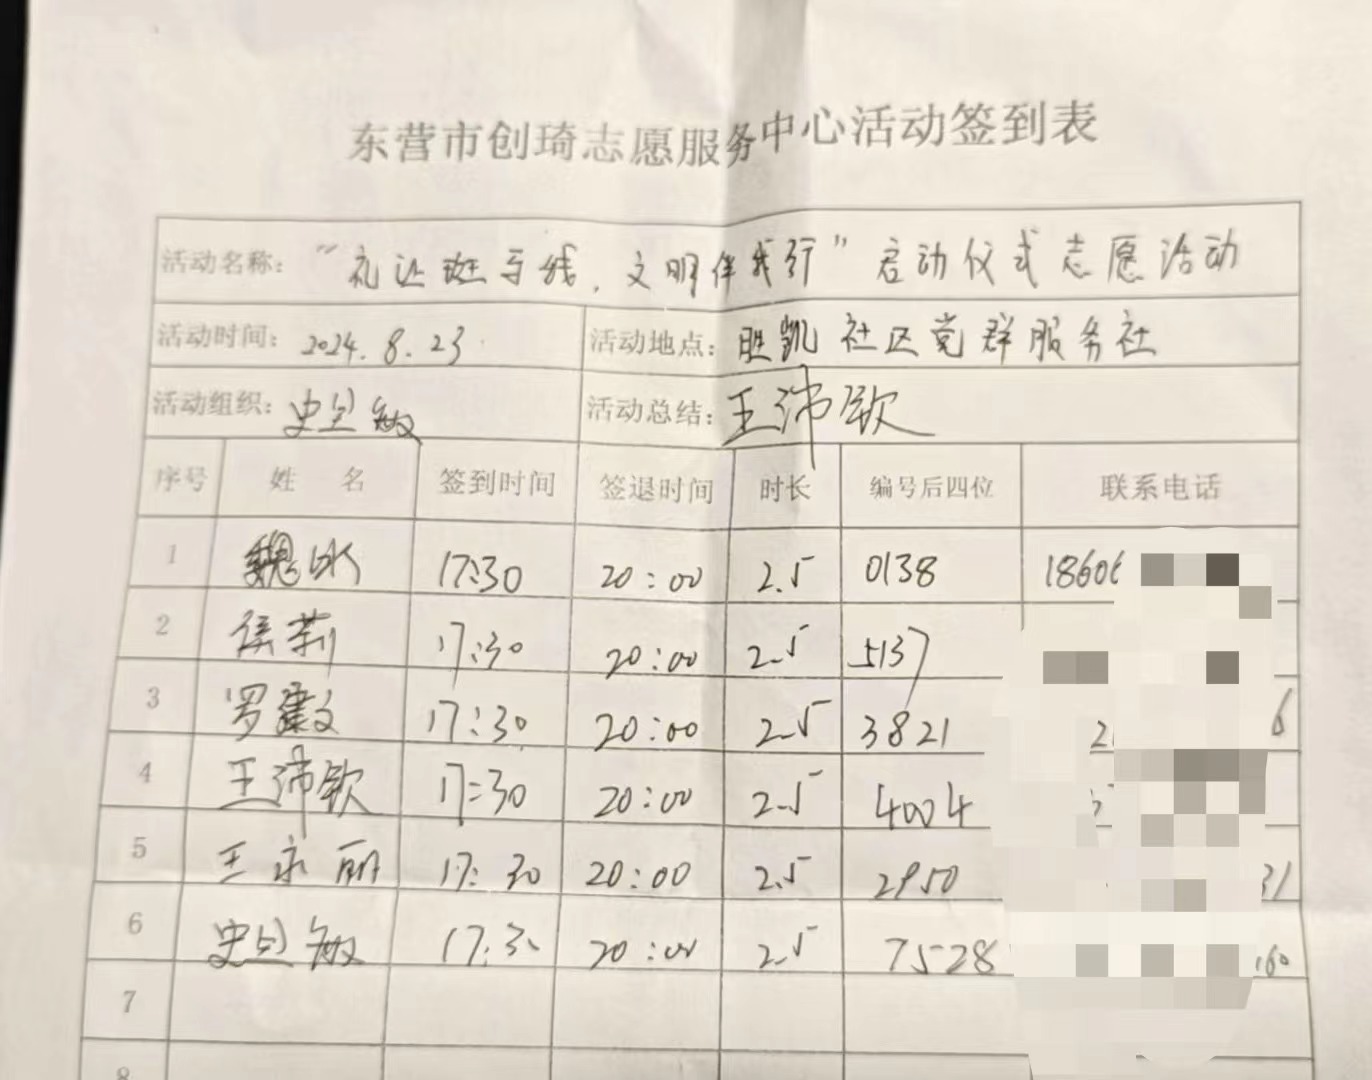 东营市创琦志愿服务中心活动签到表
活动名称：“礼让斑马线，文明伴我行”启动仪式志愿活动
活动时间：2024.8.23 活动地点：胜凯社区党群服务社
活动组织：史 敏 活动总结：王沛钦
序号 姓 名 签到时间 签退时间 时长 编号后四位 联系电话
1 魏 17:30 20:00 2.5 0138 18606
2 侯莉 17:30 20:00 2.5 5137
3 罗建文 17:30 20:00 2.5 3821 2 6
4 王沛钦 17:30 20:00 2.5 4004
5 王永丽 17:30 20:00 2.5 2950 31
6 史 敏 17:30 20:00 2.5 7528 160
7
8